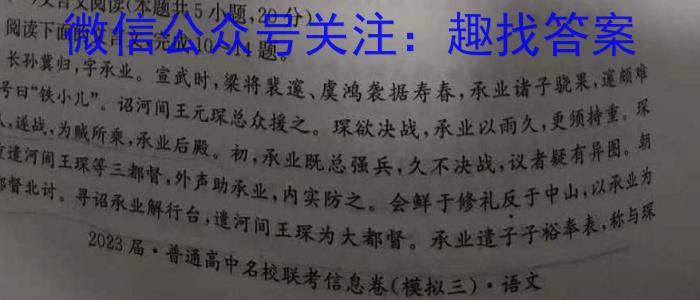 文言文阅读(本题共5小题,20分)
微信公众号关注：趣找答案
阅读下面的 完成10 14题。
长孙冀归,字承业。宣武时,梁将裴邃、虞鸿袭据寿春,承业诸子骁果,邃颇难
号曰“铁小儿”。诏河间王元琛总众援之。琛欲决战,承业以雨久,更须持重。琛
遂战,为贼所乘,承业后殿。初,承业既总强兵,久不决战,议者疑有异图。朝
遣河间王琛等三都督,外声助承业,内实防之。会鲜于修礼反于中山,以承业为
都督北讨。寻诏承业解行台,遣河间王琛为大都督。承业遣子子裕奉表,称与琛
2023届·普通高中名校联考信息卷(模拟三)·语文